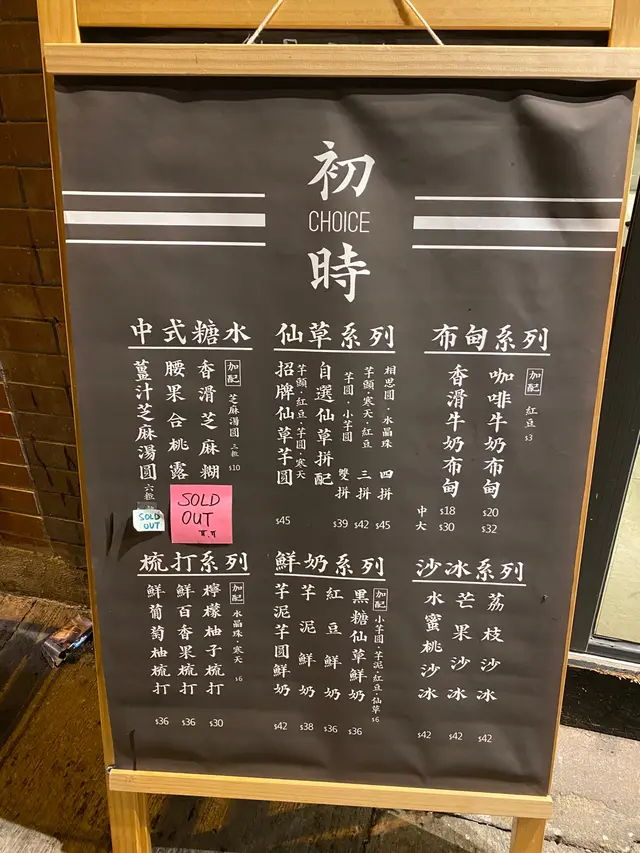 初
CHOICE
時
中式糖水
薑汁芝麻湯圓
六粒
SOLD OUT
腰果合桃露
香滑芝麻糊
SOLD OUT
加配
芝麻湯圓 三粒 $10
仙草系列
招牌仙草芋圓
芋頭·紅豆·芋圓·寒天
$45
自選仙草拼配
芋圓·小芋圓
雙拼 $39
芋頭·寒天·紅豆
三拼 $42
相思圓·水晶珠
四拼 $45
布甸系列
香滑牛奶布甸
中 $18
大 $30
咖啡牛奶布甸
$20
$32
加配
紅豆 $3
梳打系列
鮮葡萄柚梳打
$36
鮮百香果梳打
$36
檸檬柚子梳打
$30
加配
水晶珠·寒天 $6
鮮奶系列
芋泥芋圓鮮奶
$42
芋泥鮮奶
$38
紅豆鮮奶
$36
黑糖仙草鮮奶
$36
加配
小芋圓·芋泥·紅豆·仙草 $6
沙冰系列
水蜜桃沙冰
$42
芒果沙冰
$42
荔枝沙冰
$42